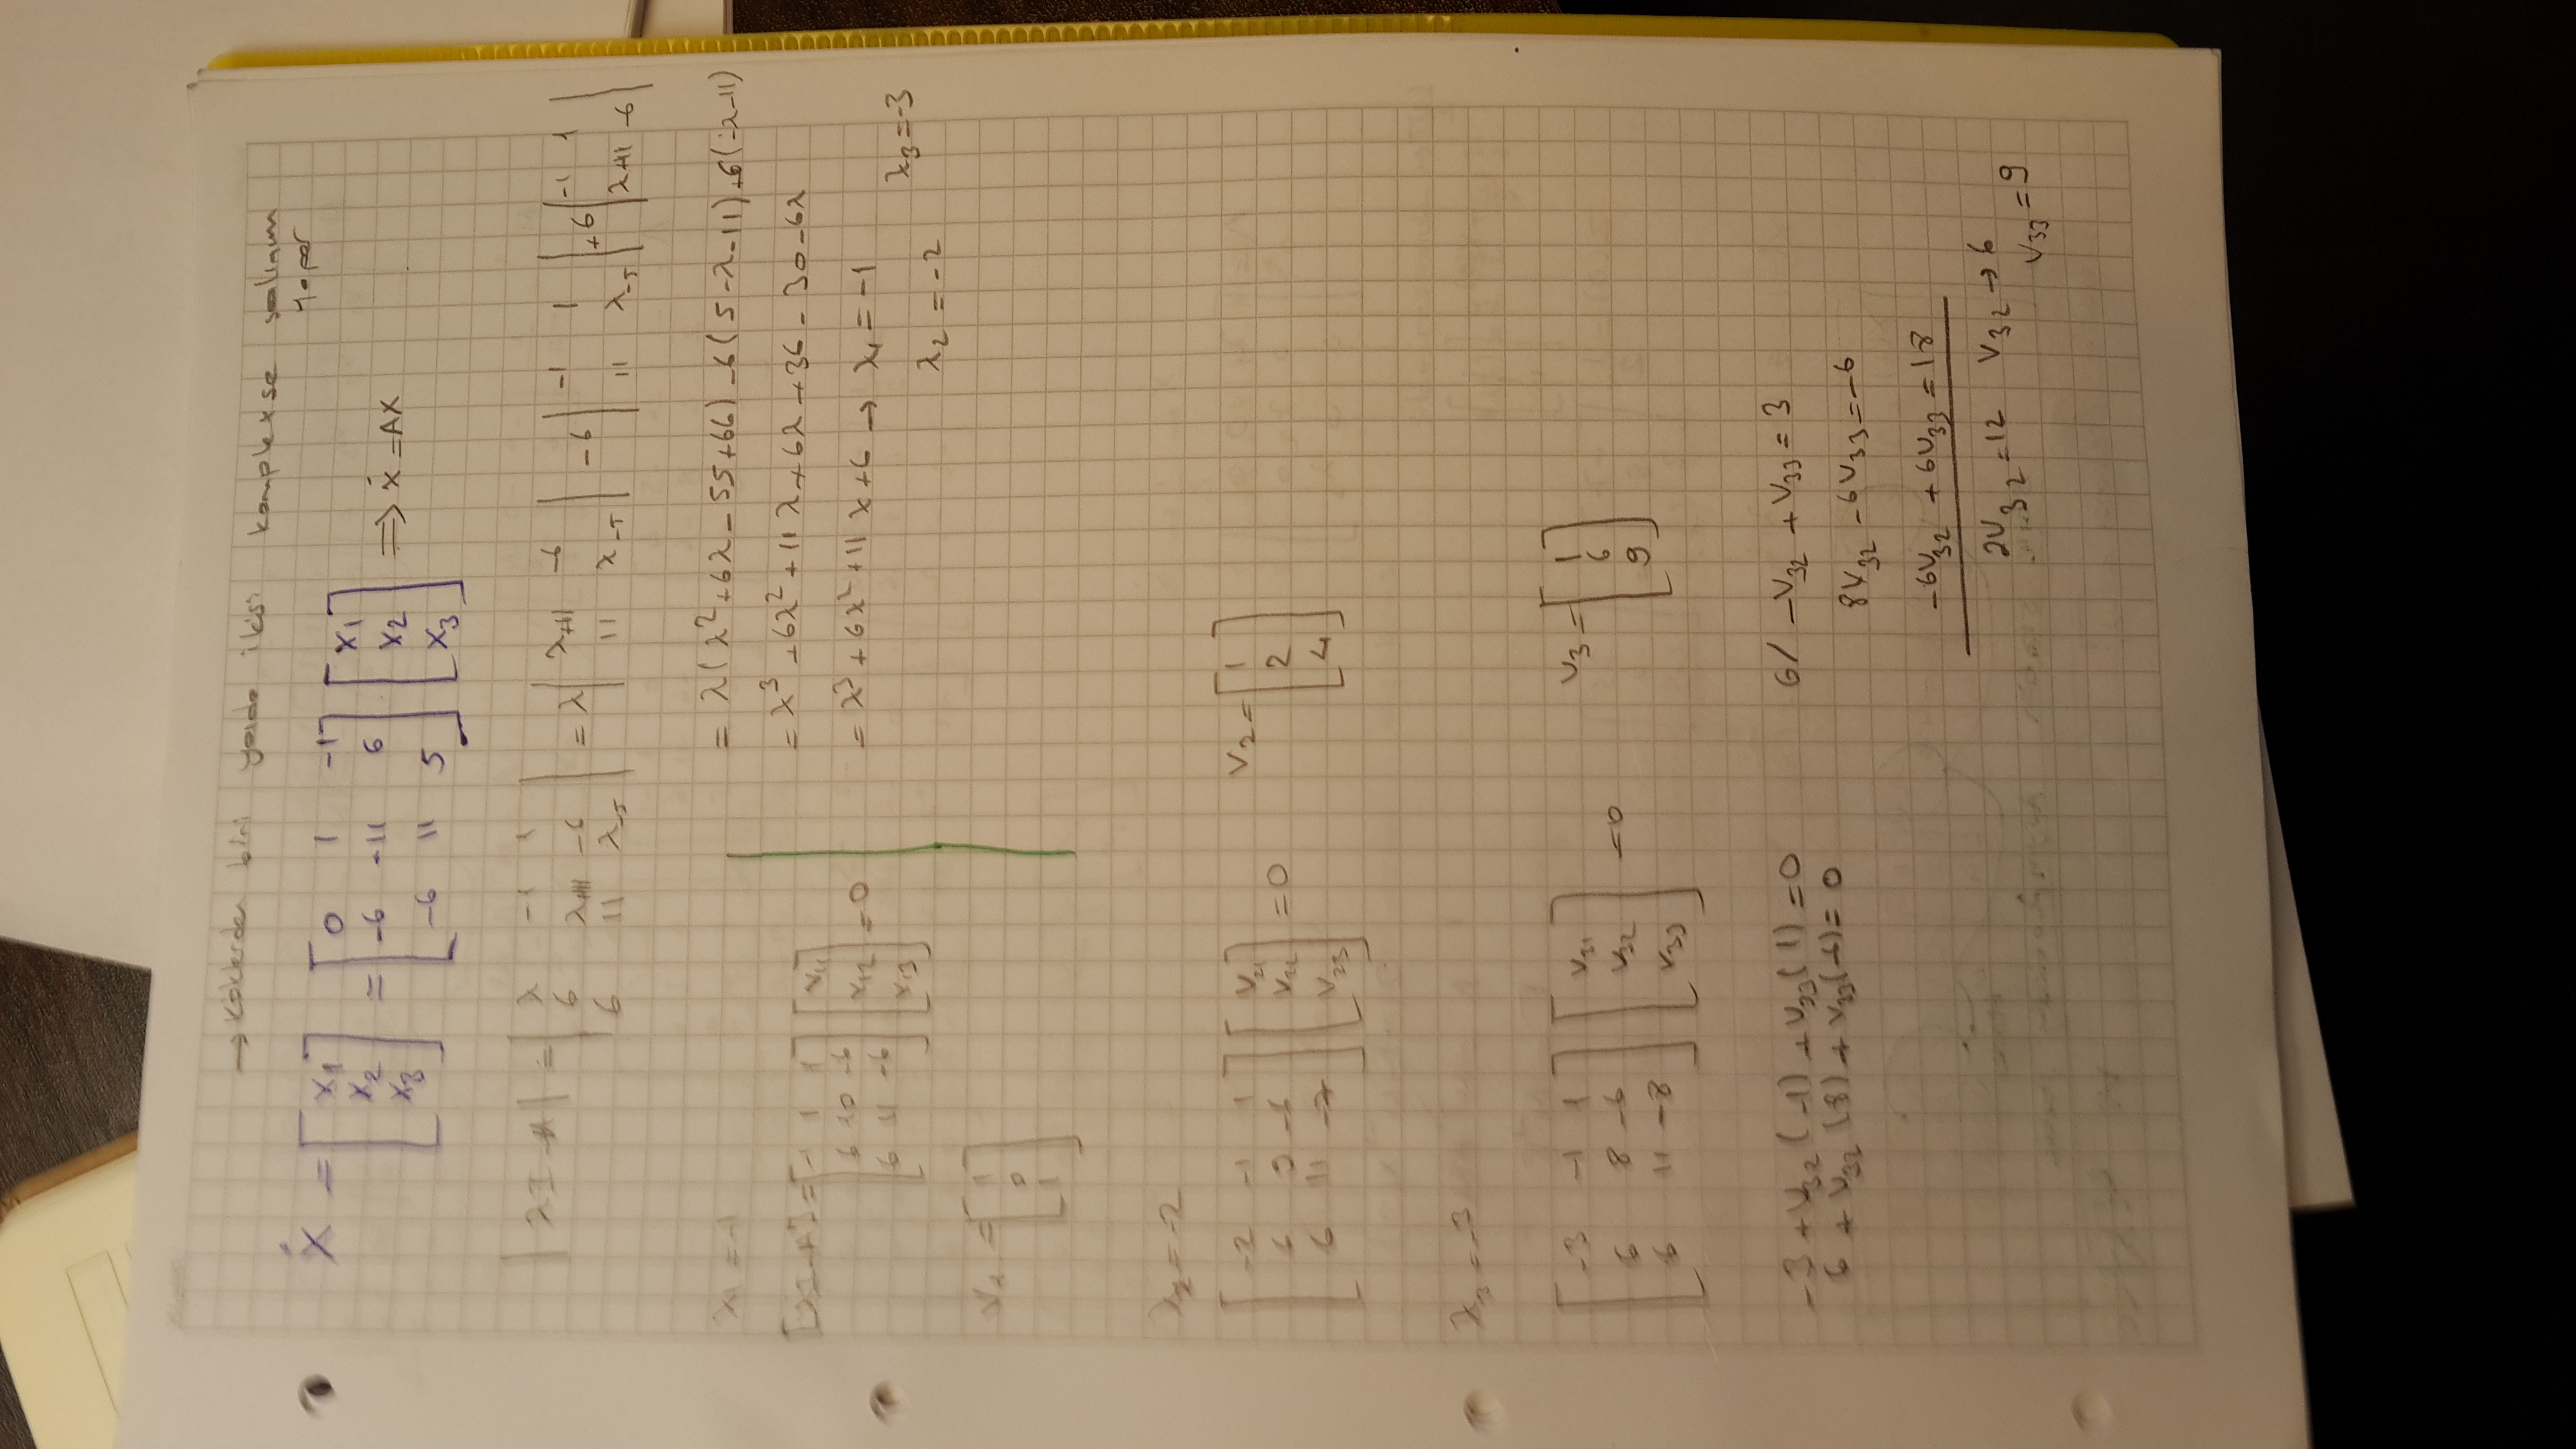 → Köklerden biri yarıda ikisi komplexse salınım
yapar
Ẋ = [x1 x2 x3] = [0 1 -1; -6 -11 6; -6 11 5] [x1 x2 x3] ⇒ ẋ = AX
|λI-A| = |λ -1 1; 6 λ+11 -6; 6 11 λ-5| = λ |λ+11 -6; 11 λ-5| -6 |-1 1; 11 λ-5| +6 |-1 1; λ+11 -6|
= λ(λ² +6λ - 55+66) -6(5-λ-11) +6(-λ-11)
= λ³ +6λ² +11λ +6λ +36 - 30 -6λ
= λ³ + 6λ² +11λ +6 → λ1 = -1
λ2 = -2
λ3 = -3
λ1 = -1
[λI-A] = [-1 1 1; 6 10 -6; 6 11 -6] [v11 v12 v13] = 0
v1 = [1 0 1]
λ2 = -2
[-2 -1 1; 6 9 -6; 6 11 -7] [v21 v22 v23] = 0
v2 = [1 2 4]
λ3 = -3
[-3 -1 1; 6 8 -6; 6 11 -8] [v31 v32 v33] = 0
v3 = [1 6 9]
-3 + v32(-1) + v33(1) = 0
6 + v32(8) + v33(-6) = 0
6/ -v32 + v33 = 3
8v32 - 6v33 = -6
-6v32 + 6v33 = 18
2v32 = 12 v32 → 6
v33 = 9